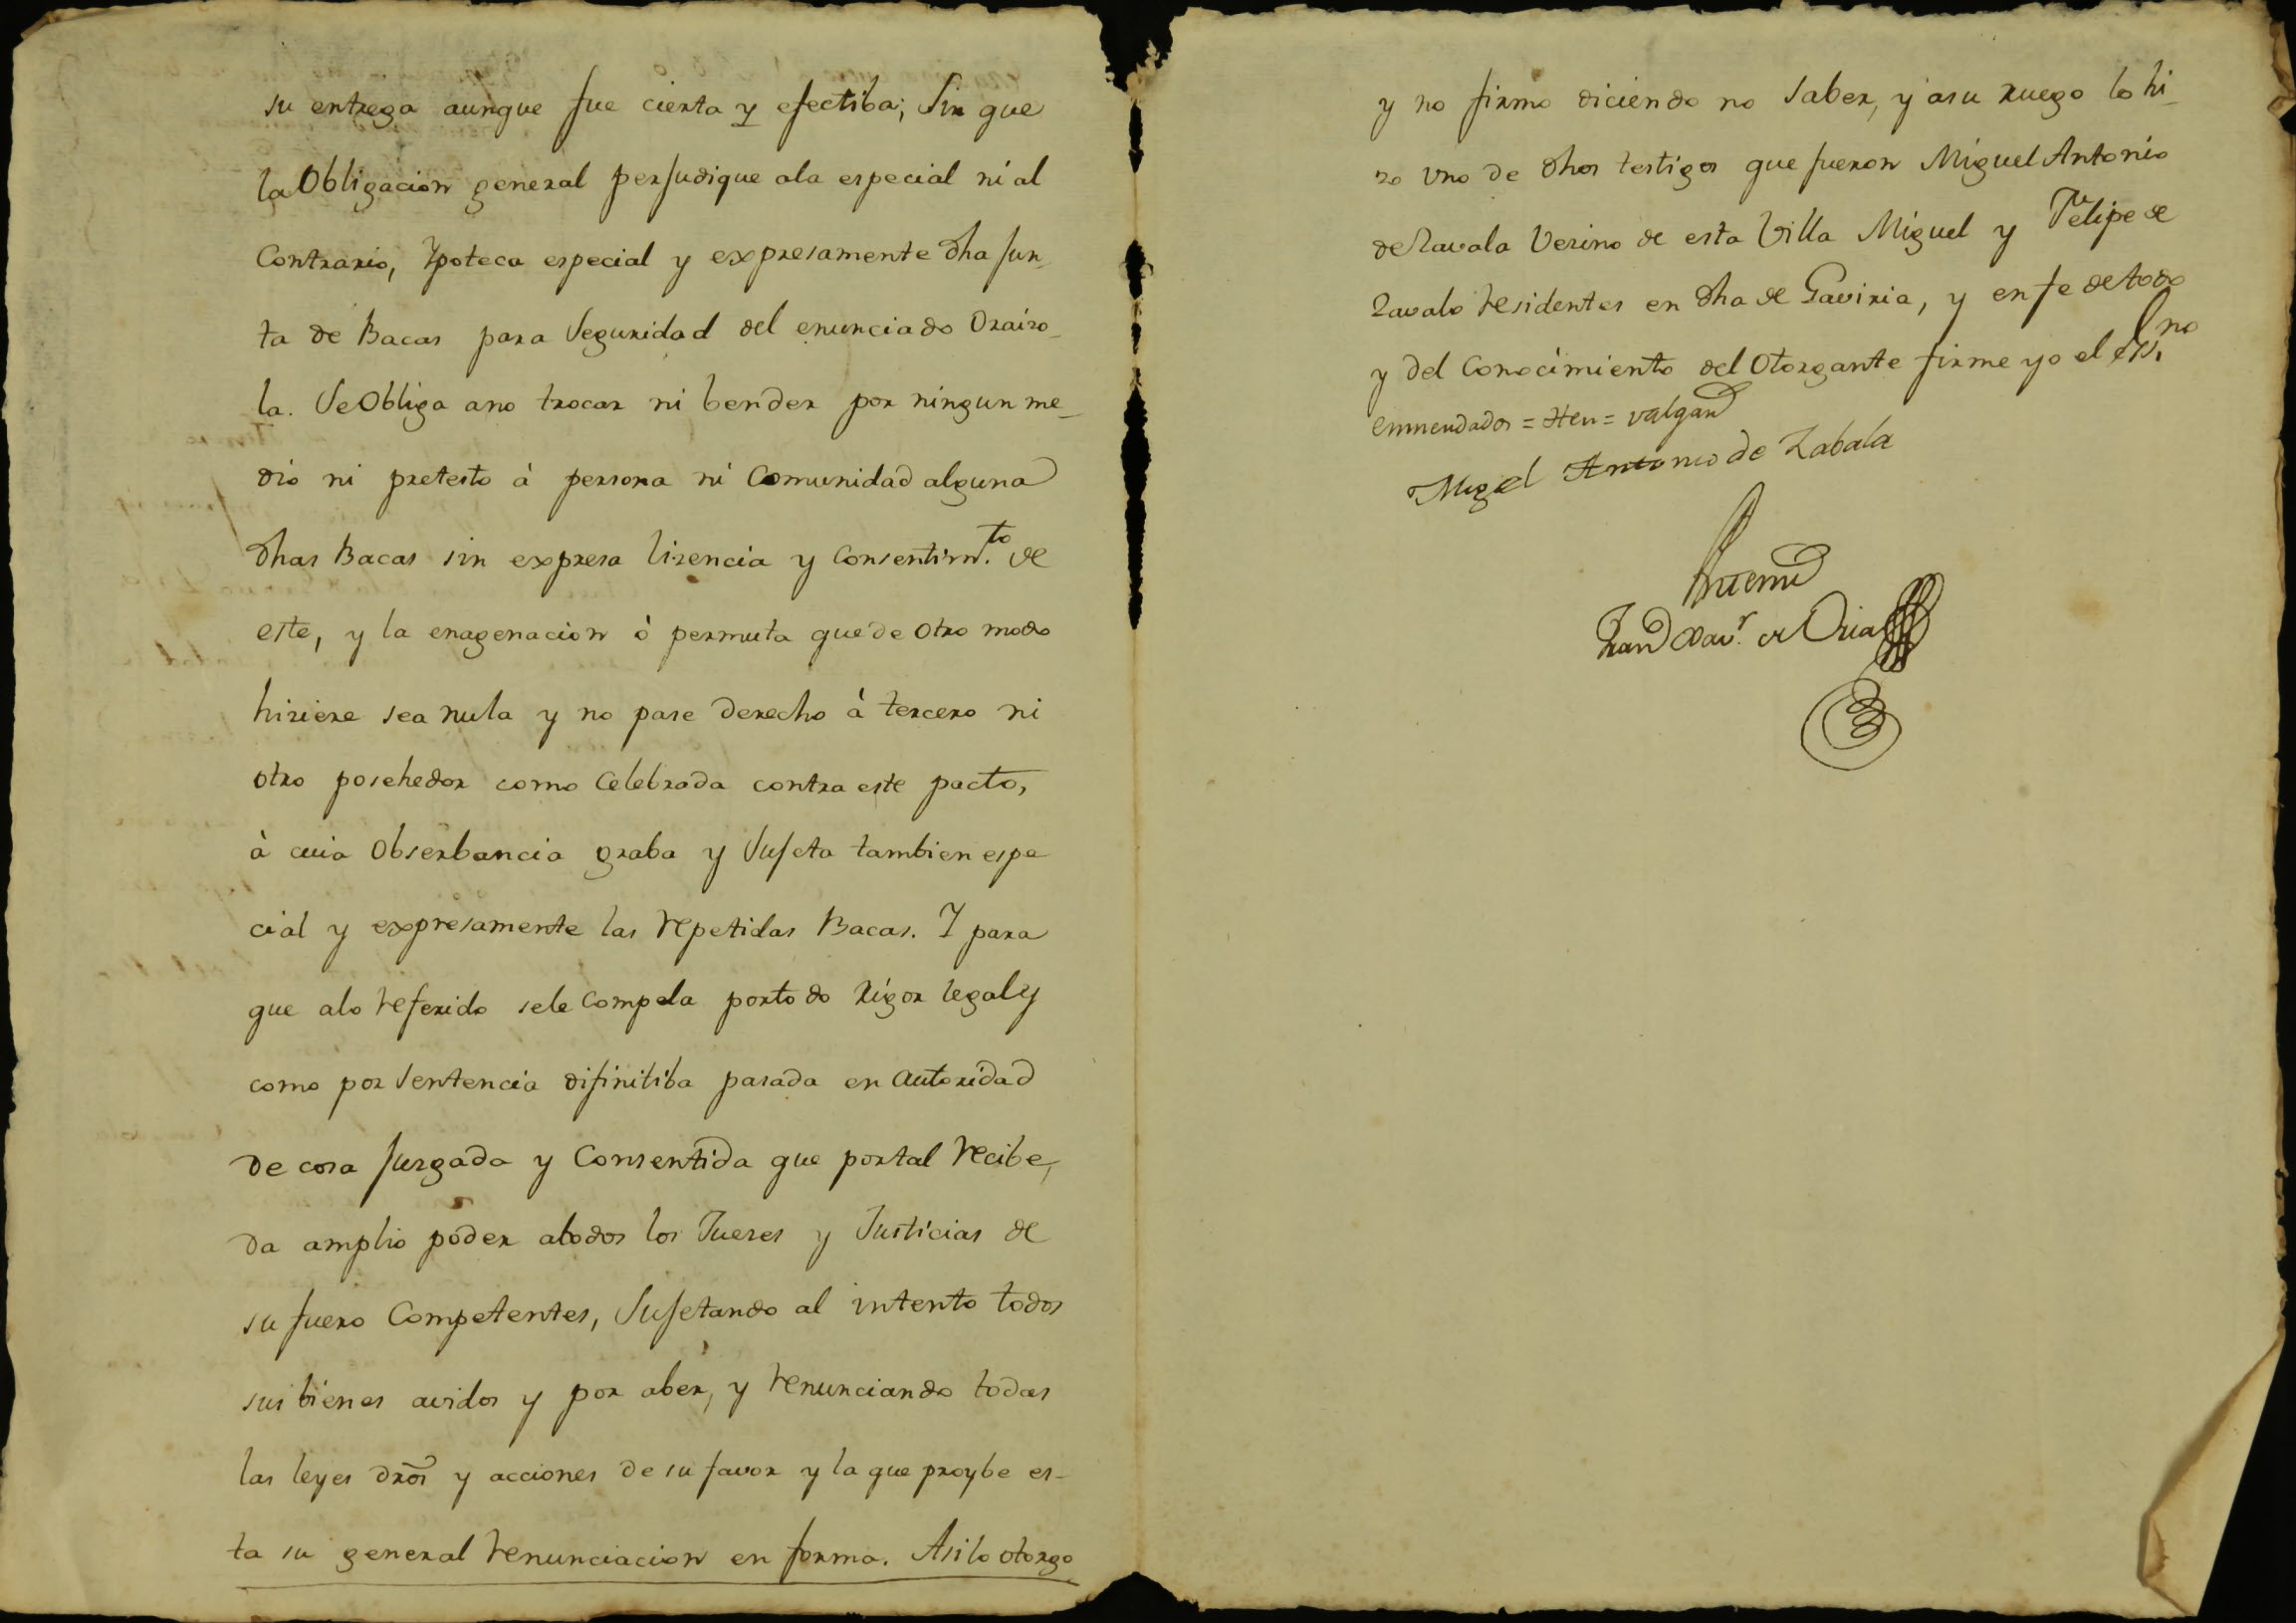 su entrega aunque fue cierta y efectiba; Sin que
la Obligacion general perjudique ala especial ni al
Contrario, Ypoteca especial y expresamente dha Jun-
ta de Bacas para Seguridad del enunciado Oraizo-
la. Se Obliga ano trocar ni bender por ningun me-
dio ni pretesto à persona ni Comunidad alguna
dhas Bacas sin expresa lizencia y Consentim.to de
este, y la enagenacion ò permuta que de otro modo
hiziere sea nula y no pase derecho à tercero ni
otro posehedor como Celebrada contra este pacto,
à cuia Obserbancia graba y Sujeta tambien espe
cial y expresamente las repetidas Bacas. Y para
que alo referido sele Compela portodo Rigor legal y
como por Sentencia difinitiba pasada en autoridad
de cosa Juzgada y Consentida que portal recibe,
da amplio poder atodos los Juezes y Justicias de
su fuero Competentes, Sujetando al intento todos
sus bienes avidos y por aber, y renunciando todas
las leyes dros y acciones de su favor y la que proybe es-
ta su general renunciacion en forma. Asi lo otorgo
y no firmo diciendo no Saber, y asu ruego lo hi-
zo Uno de dhos testigos que fueron Miguel Antonio
de Zavala Vezino de esta Villa Miguel y Felipe de
Zavala residentes en dha de Gaviria, y en fe de todo
y del Conocimiento del Otorgante firme yo el ess.no
emmendados = = valgan
Migel Antonio de Zabala
Antemi
Fran Xav.r de Oria